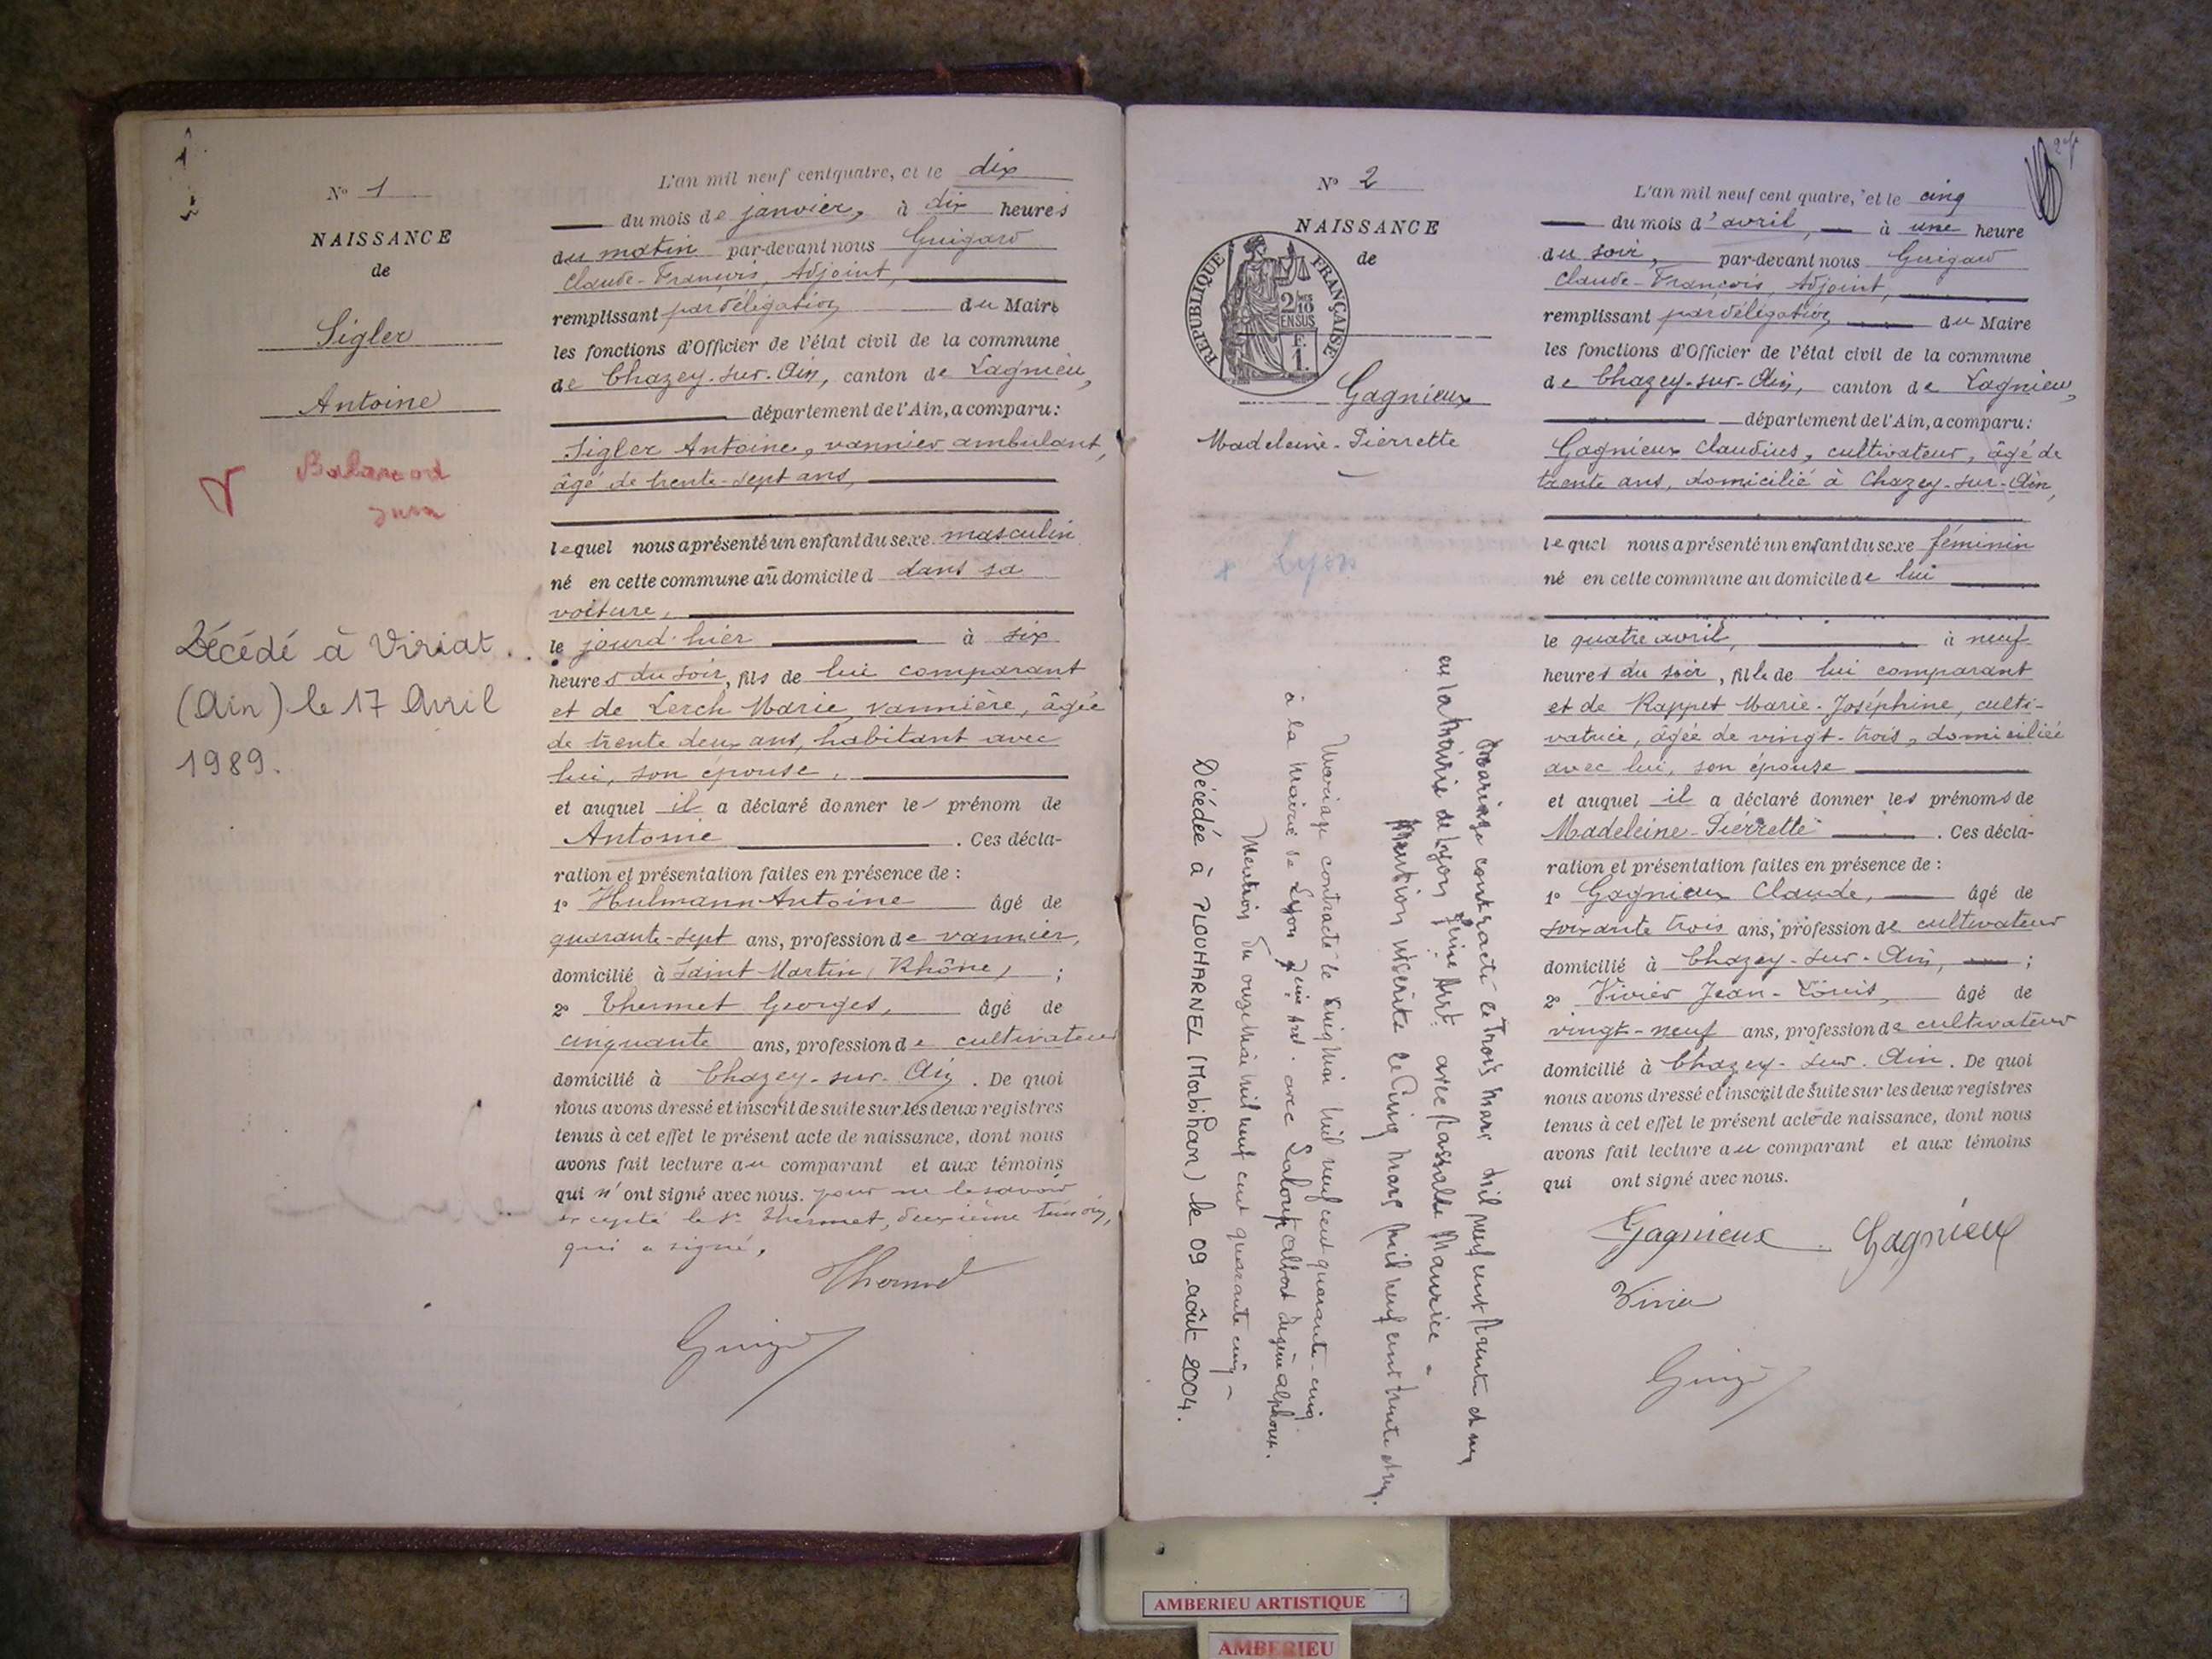 1
N° 1
NAISSANCE
de
Sigler
Antoine
Décédé à Viriat
(Ain) le 17 Avril
1989.
L'an mil neuf cent quatre, et le dix
du mois de janvier, à dix heures
du matin par-devant nous Guigard
Claude-François, Adjoint,
remplissant par délégation du Maire
les fonctions d'Officier de l'état civil de la commune
de Chazey-sur-Ain, canton de Lagnieu,
département de l'Ain, a comparu:
Sigler Antoine, vannier ambulant,
âgé de trente-sept ans,
lequel nous a présenté un enfant du sexe masculin
né en cette commune au domicile d dans sa
voiture,
le jourd'hier à six
heures du soir, fils de lui comparant
et de Lerch Marie, vannière, âgée
de trente deux ans, habitant avec
lui, son épouse,
et auquel il a déclaré donner le prénom de
Antoine . Ces décla-
ration et présentation faites en présence de :
1° Hulmann Antoine âgé de
quarante-sept ans, profession de vannier,
domicilié à Saint-Martin (Rhône) ;
2° Thermet Georges, âgé de
cinquante ans, profession de cultivateur
domicilié à Chazey-sur-Ain . De quoi
nous avons dressé et inscrit de suite sur les deux registres
tenus à cet effet le présent acte de naissance, dont nous
avons fait lecture au comparant et aux témoins
qui n'ont signé avec nous. pour ne le savoir
excepté le Sr Thermet, deuxième témoin,
qui a signé.
Thermet
N° 2
NAISSANCE
de
REPUBLIQUE FRANÇAISE
2/10
EN SUS
1
Gagnieux
Madeleine-Pierrette
Lyon
Mariage contracté le trois Mars mil neuf cent trente et un
en la Mairie de Lyon arrt. avec Maurice -
Mention inscrite le Cinq Mars mil neuf cent trente et un.
Mariage contracté le cinq Mai mil neuf cent quarante-cinq
à la Mairie de Lyon Arrt. avec
Mention du onze Mai mil neuf cent quarante cinq -
Décédée à PLOUHARNEL (Morbihan) le 09 août 2004.
L'an mil neuf cent quatre, et le cinq
du mois d'avril, à une heure
du soir, par-devant nous Guigard
Claude-François, Adjoint,
remplissant par délégation du Maire
les fonctions d'Officier de l'état civil de la commune
de Chazey-sur-Ain, canton de Lagnieu,
département de l'Ain, a comparu:
Gagnieux Claudius, cultivateur, âgé de
trente ans, domicilié à Chazey-sur-Ain,
lequel nous a présenté un enfant du sexe féminin
né en cette commune au domicile de lui
le quatre avril, à neuf
heures du soir, fille de lui comparant
et de Rappet Marie-Joséphine, culti-
vatrice, âgée de vingt-trois, domiciliée
avec lui, son épouse
et auquel il a déclaré donner les prénoms de
Madeleine-Pierrette . Ces décla-
ration et présentation faites en présence de :
1° Gagnieux Claude, âgé de
soixante trois ans, profession de cultivateur
domicilié à Chazey-sur-Ain, ;
2° Vivier Jean-Louis, âgé de
vingt-neuf ans, profession de cultivateur
domicilié à Chazey-sur-Ain. De quoi
nous avons dressé et inscrit de suite sur les deux registres
tenus à cet effet le présent acte de naissance, dont nous
avons fait lecture au comparant et aux témoins
qui ont signé avec nous.
Gagnieux Gagnieux
Vivier
AMBERIEU ARTISTIQUE
AMBERIEU